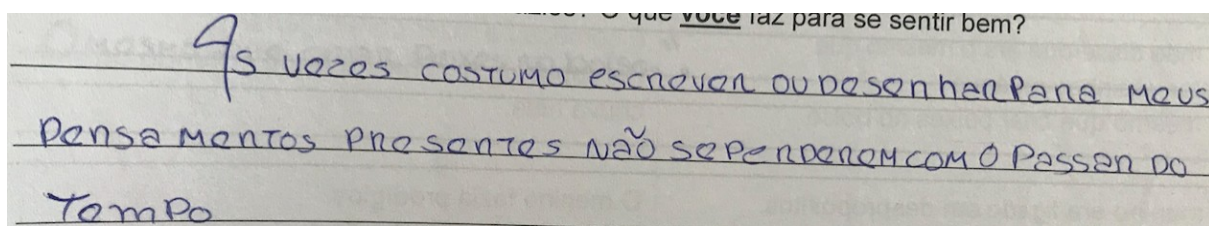 que você faz para se sentir bem?
As vezes costumo escrever ou desenhar para meus
pensamentos presentes não se perderem com o passar do
tempo